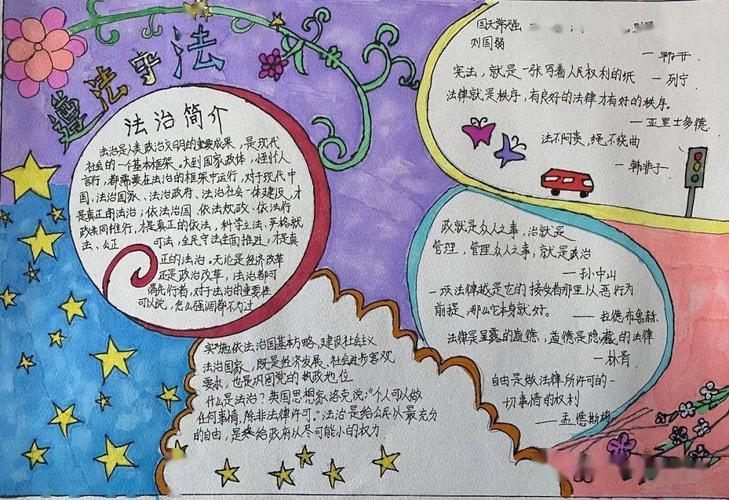 遵法守法
法治简介
法治是人类政治文明的重要成果，是现代
社会的一个基本框架。大到国家政体，小到个人
言行，都需要在法治的框架中运行，对于现代中
国，法治国家、法治政府、法治社会一体建设，才
是真正的法治；依法治国、依法执政、依法行
政共同推行，才是真正的依法，科学立法、严格执
法、公正
司法，全民守法全面推进，才是真
正的法治。无论是经济改革
还是政治改革，法治都可
谓先行者，对于法治的重要性
可以说，怎么强调都不为过
国无常强
刘国弱
一韩非
宪法，就是一张写着人民权利的纸
一列宁
法律就是秩序，有良好的法律才有好的秩序。
一亚里士多德
法不阿贵，绳不挠曲
一韩非子
政就是众人之事，治就是
管理，管理众人之事，就是政治
一孙中山
一项法律越是它的接受者那里从恶行为
前提，那么它本身就好。
法律是显露的道德，道德是隐藏的法律
一林肯
自由是做法律所许可的一
切事情的权利
一孟德斯鸠
实施依法治国基本方略，建设社会主义
法治国家，既是经济发展、社会进步客观
要求，也是巩固党的执政地位
什么是法治？英国思想家洛克说：“个人可以做
任何事情，除非法律许可。”法治是给公民以最充分
的自由，是给政府以尽可能小的权力